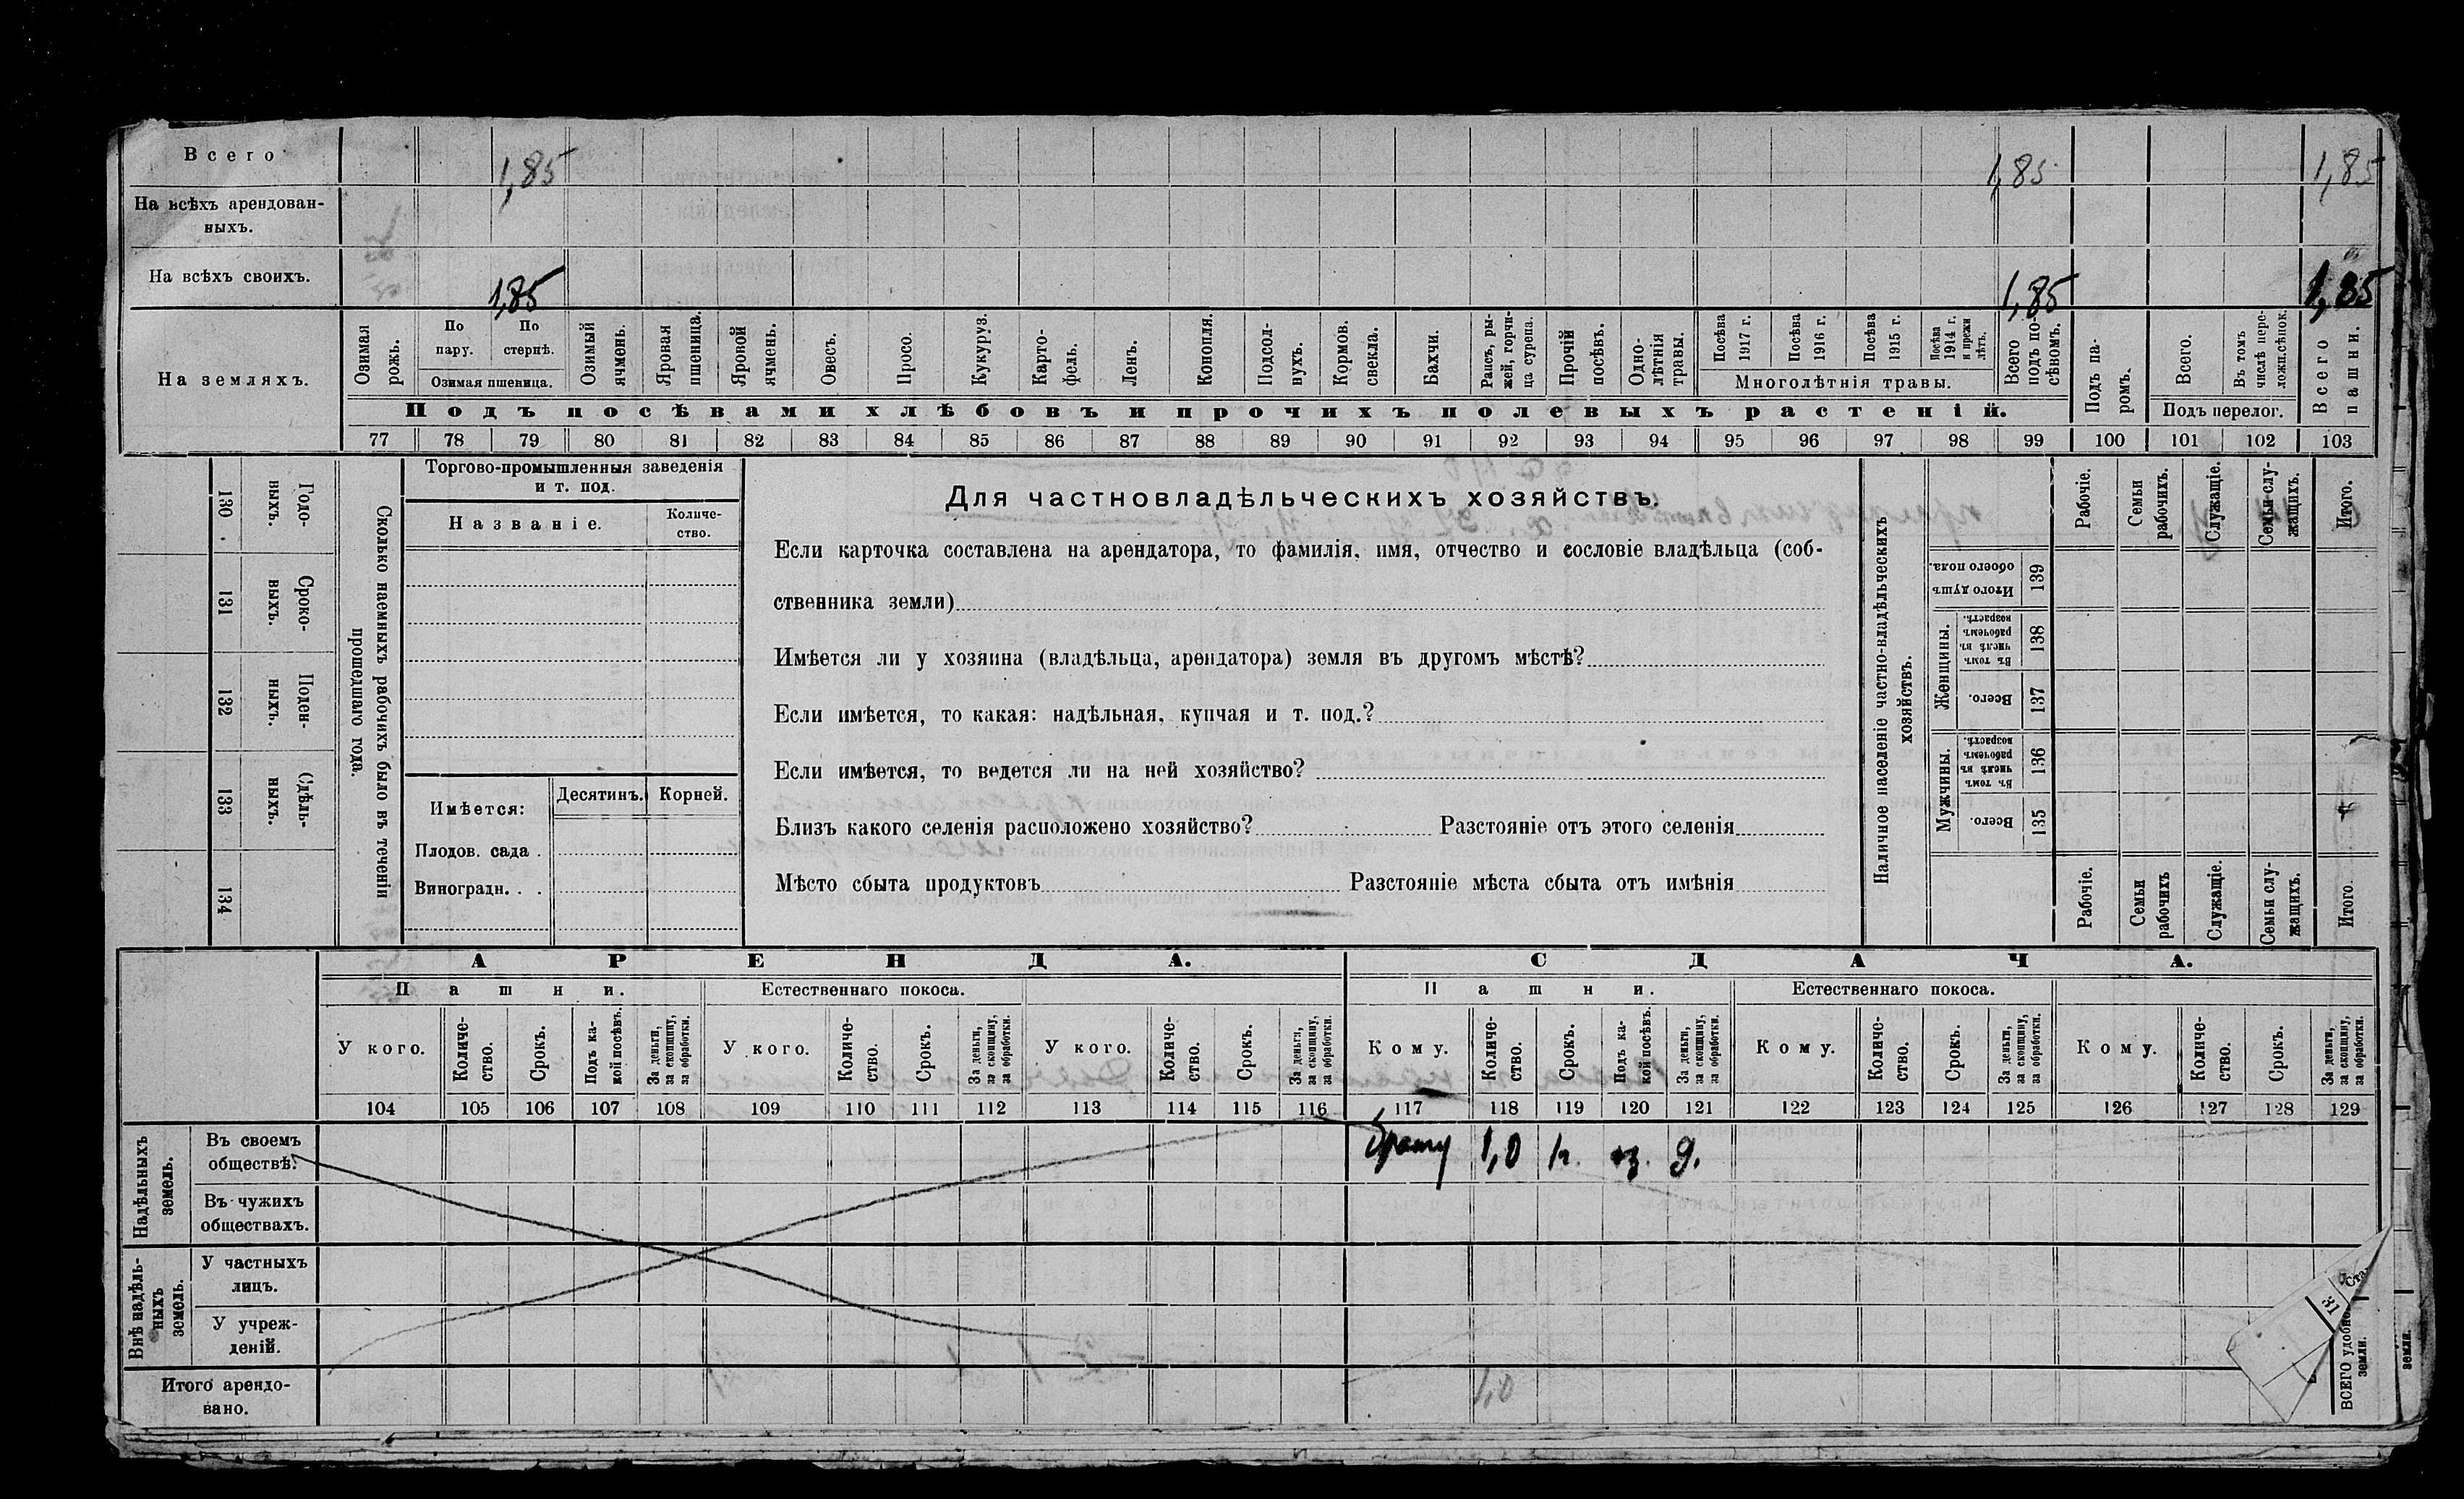 Всего 1,85 1,85 1,85
На всѣхъ арендован-
ныхъ.
На всѣхъ своихъ. 1,85 1,85 1,85
На земляхъ.
Озимая рожь.
По пару.
По стернѣ.
Озимая пшеница.
Озимый ячмень.
Яровая пшеница.
Яровой ячмень.
Овесъ.
Просо.
Кукурузъ.
Карто-
фель.
Ленъ.
Конопля.
Подсол-
нухъ.
Кормов. свекла.
Бахчи.
Рапсъ, ры-
жей, горчи-
ца сурепа.
Прочій посѣвъ.
Одно-
лѣтнія травы.
Посѣва 1917 г.
Посѣва 1916 г.
Посѣва 1915 г.
Посѣва 1914 г. и прежн лѣтъ.
Многолѣтнія травы.
Всего подъ по-
сѣвомъ.
Подъ па-
ромъ.
Всего.
Въ томъ числѣ пере-
ложн.сѣнок.
Подъ перелог.
Всего пашни.
Подъ посѣвами хлѣбовъ и прочихъ полевыхъ растеній.
77 78 79 80 81 82 83 84 85 86 87 88 89 90 91 92 93 94 95 96 97 98 99 100 101 102 103
130 Годо-
ныхъ.
131 Сроко-
ныхъ.
132 Поден-
ныхъ.
133 Сдѣль-
ныхъ.
134
Сколько наемныхъ рабочихъ было въ теченіи
прошедшаго года.
Торгово-промышленныя заведенія
и т. под.
Названіе.
Количе-
ство.
Имѣется:
Десятинъ. Корней.
Плодов. сада .
Виноградн. . .
Для частновладѣльческихъ хозяйствъ.
Если карточка составлена на арендатора, то фамилія, имя, отчество и сословіе владѣльца (соб-
ственника земли)
Имѣется ли у хозяина (владѣльца, арендатора) земля въ другомъ мѣстѣ?
Если имѣется, то какая: надѣльная, купчая и т. под.?
Если имѣется, то ведется ли на ней хозяйство?
Близъ какого селенія расположено хозяйство? Разстояніе отъ этого селенія
Мѣсто сбыта продуктовъ Разстояніе мѣста сбыта отъ имѣнія
Наличное населеніе частно-владѣльческихъ
хозяйствъ.
Рабочіе.
Семьи рабочихъ.
Служащіе.
Семьи слу-
жащихъ.
Итого.
Итого душъ обоего пола. 139
Женщины.
Въ томъ числѣ въ рабочемъ возрастѣ. 138
Всего. 137
Мужчины.
Въ томъ числѣ въ рабочемъ возрастѣ. 136
Всего. 135
Рабочіе.
Семьи рабочихъ
Служащіе.
Семьи слу-
жащихъ.
Итого.
АРЕНДА. СДАЧА.
Пашни. Естественнаго покоса. Пашни. Естественнаго покоса.
У кого.
Количе-
ство.
Срокъ.
Подъ ка-
кой посѣвъ.
За деньги, за скопщину, за обработки.
У кого.
Количе-
ство.
Срокъ.
За деньги, за скопщину, за обработки.
У кого.
Количе-
ство.
Срокъ.
За деньги, за скопщину, за обработки.
Кому.
Количе-
ство.
Срокъ.
Подъ ка-
кой посѣвъ.
За деньги, за скопщину, за обработки.
Кому.
Количе-
ство.
Срокъ.
За деньги, за скопщину, за обработки.
Кому.
Количе-
ство.
Срокъ.
За деньги, за скопщину, за обработки.
104 105 106 107 108 109 110 111 112 113 114 115 116 117 118 119 120 121 122 123 124 125 126 127 128 129
Надѣльныхъ земель.
Въ своемъ
обществѣ. брату 1,0 оз. д.
Въ чужихъ
обществахъ.
Внѣ надѣль-
ныхъ земель.
У частныхъ
лицъ.
У учреж-
деній.
Итого арендо-
вано. 1,0
31
ВСЕГО удобно
земли.
земли.